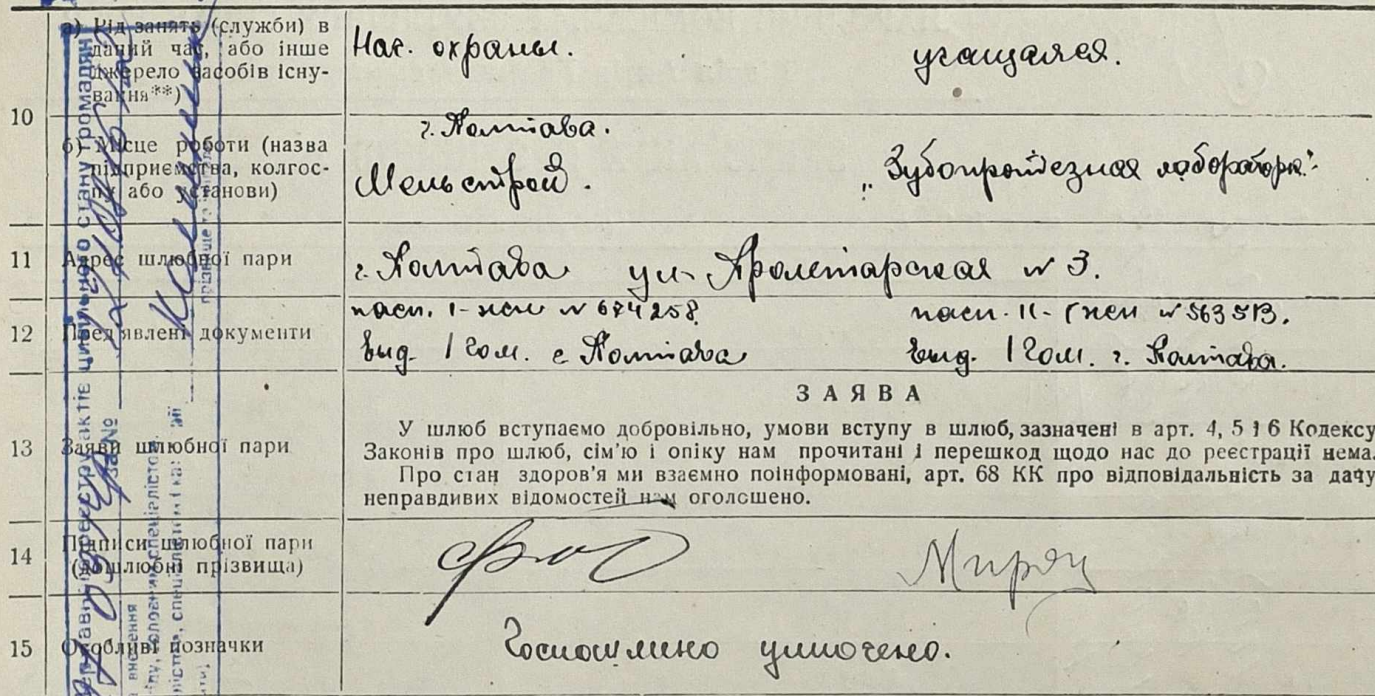 10
а) Рід занять (служби) в
даний час, або інше
джерело засобів існу-
вання**)
Нач. охраны.
учащаяся.
б) Місце роботи (назва
підприємства, колгос-
пу або установи)
г. Полтава.
Мельстрой.
„Зубопротезная лаборатор."
11
Адрес шлюбної пари
г. Полтава ул. Пролетарская № 3.
12
Пред'явлені документи
пасп. № 674258.
выд. 1 Гом. г. Полтава
пасп. № 563513.
выд. 1 Гом. г. Полтава.
13
Заяви шлюбної пари
ЗАЯВА
У шлюб вступаємо добровільно, умови вступу в шлюб, зазначені в арт. 4, 5 і 6 Кодексу
Законів про шлюб, сім'ю і опіку нам прочитані і перешкод щодо нас до реєстрації нема.
Про стан здоров'я ми взаємно поінформовані, арт. 68 КК про відповідальність за дачу
неправдивих відомостей нам оголошено.
14
Підписи шлюбної пари
(дошлюбні прізвища)
15
Особливі позначки
Госпошлино уплочено.
актів цивільного стану громадян
за №